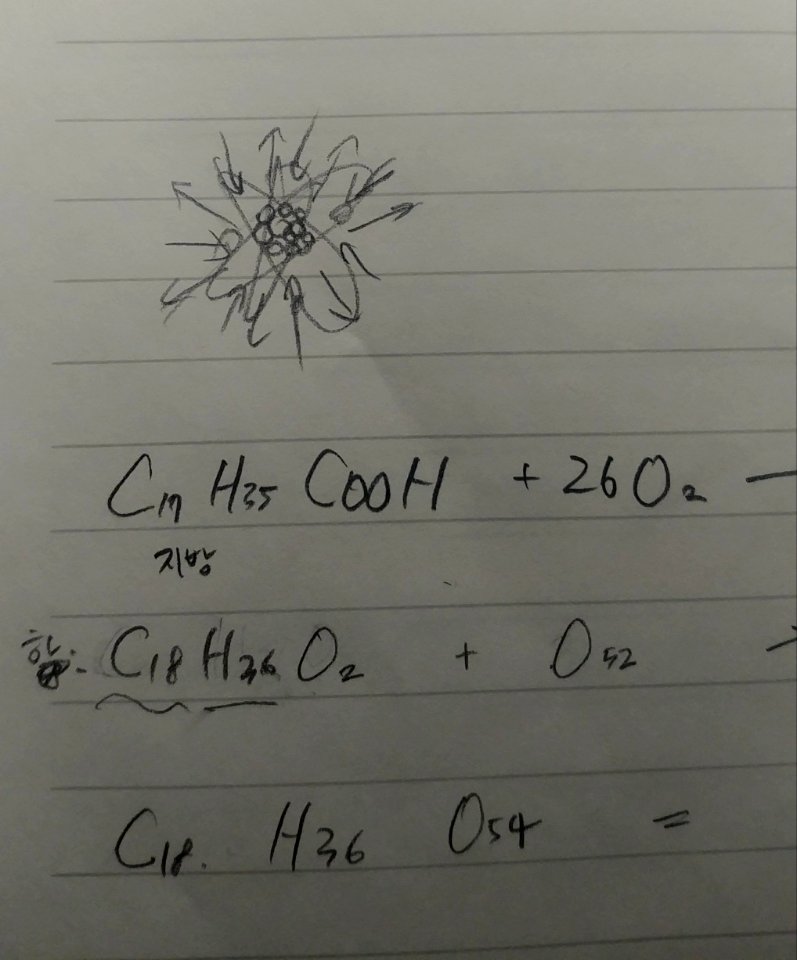 C₁₇ H₃₅ COOH + 26 O₂ —
지방
합: C₁₈ H₃₆ O₂ + O₅₂ →
C₁₈. H₃₆ O₅₄ =